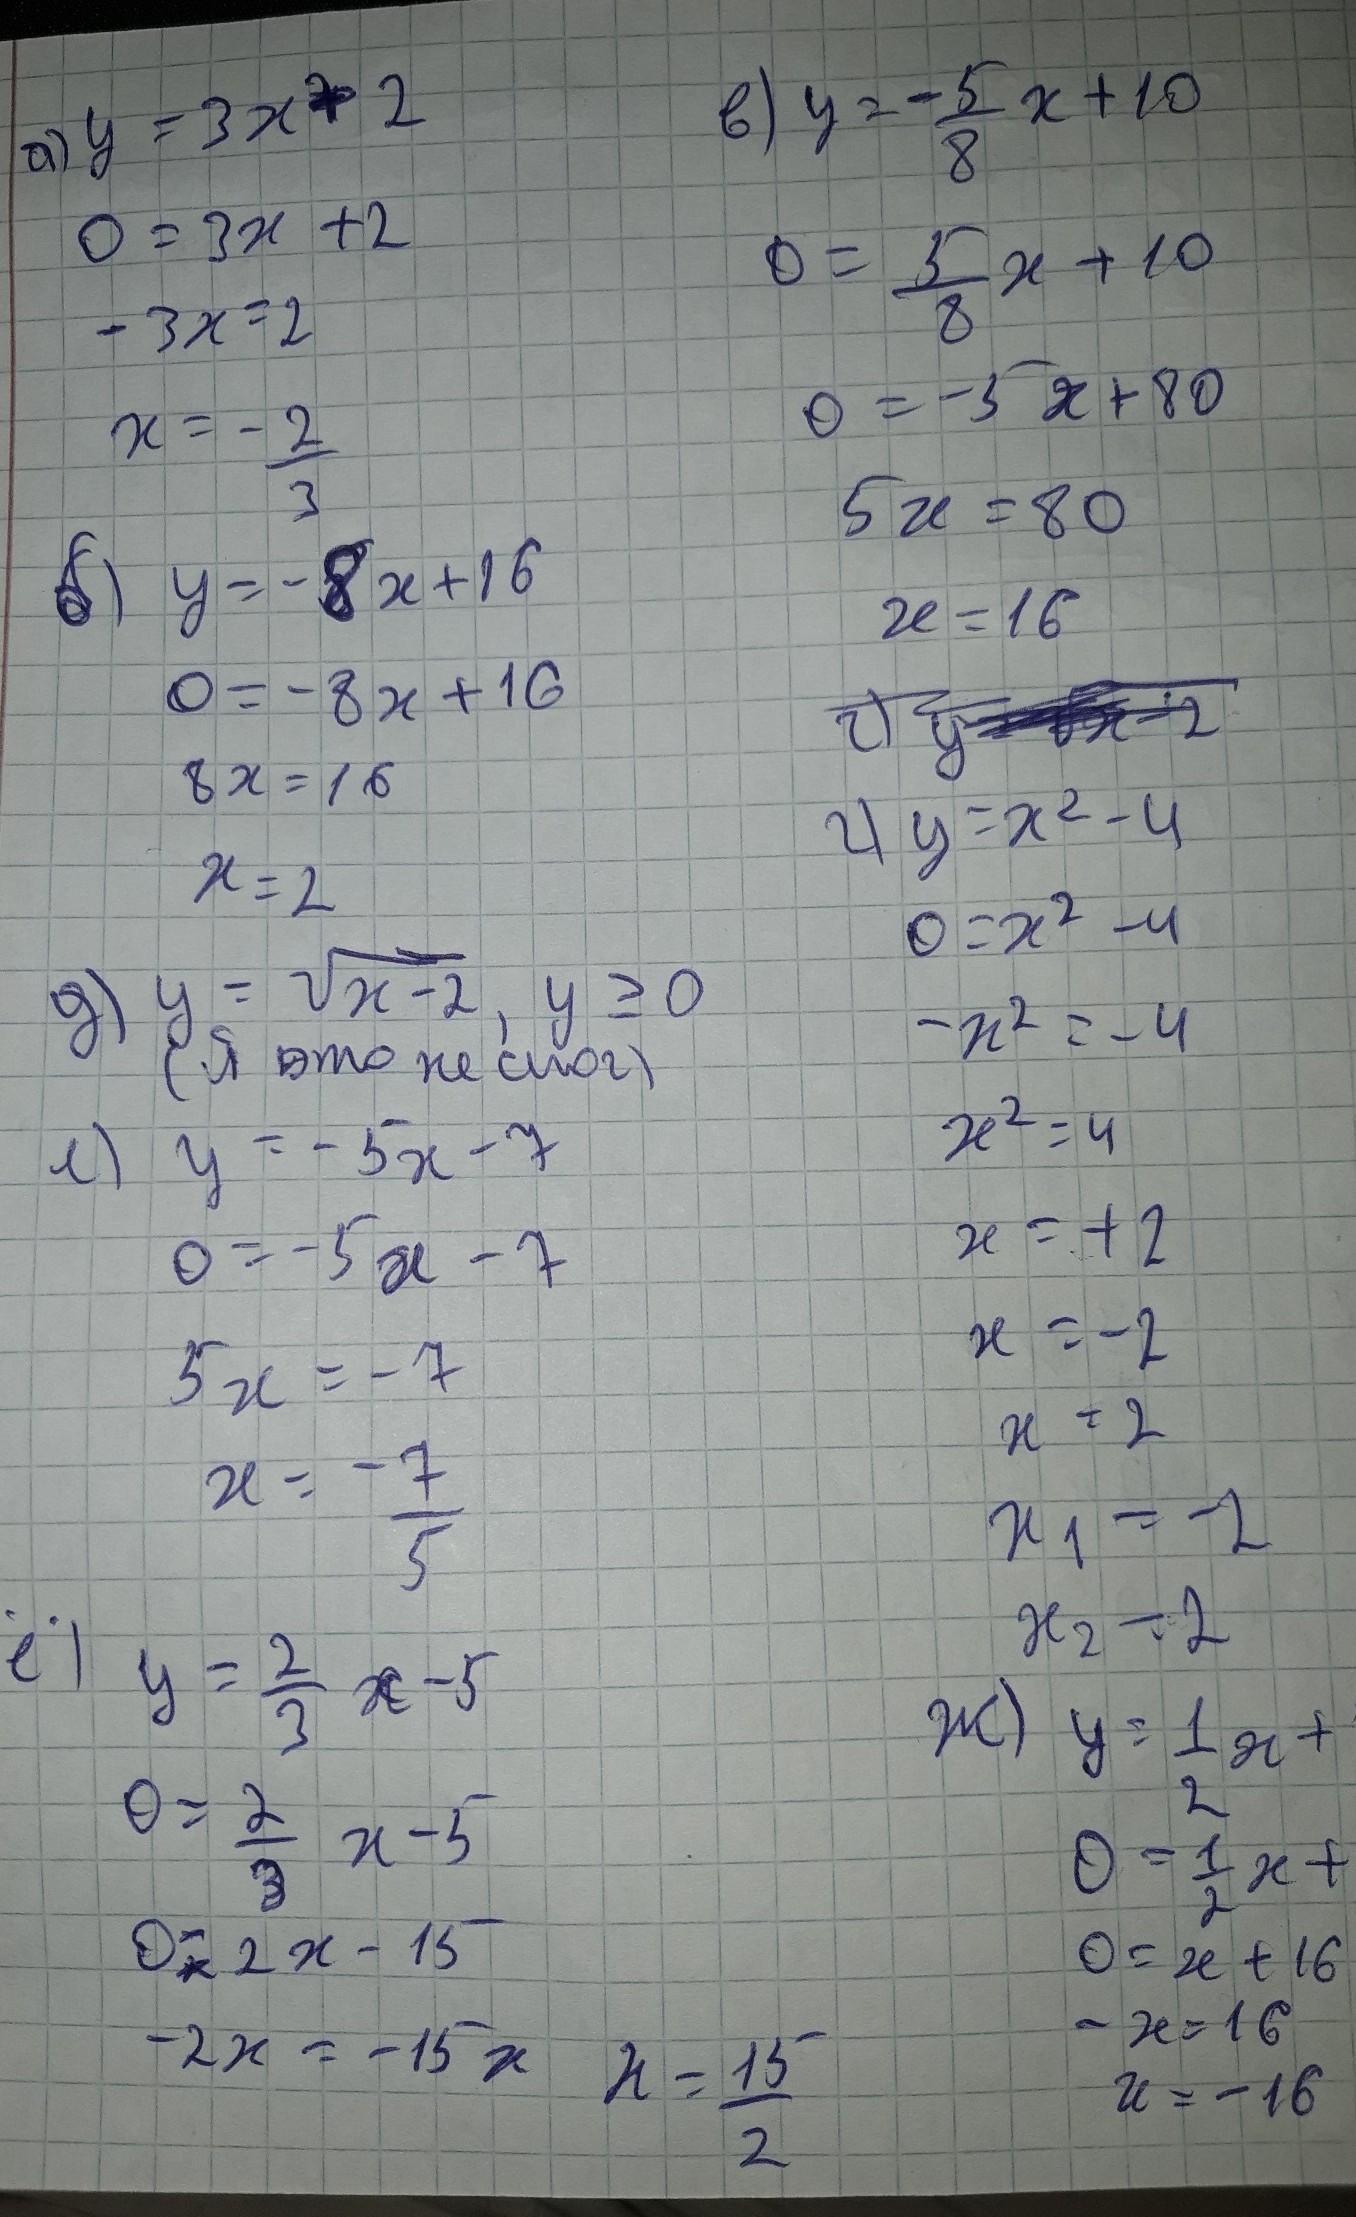 а) y = 3x + 2
0 = 3x + 2
- 3x = 2
x = - 2/3
б) y = -8x + 16
0 = -8x + 16
8x = 16
x = 2
д) y = √x-2, y ≥ 0
(Я это не смог)
е) y = -5x - 7
0 = -5x - 7
5x = -7
x = -7/5
ё) y = 2/3 x - 5
0 = 2/3 x - 5
0 = 2x - 15
-2x = -15x
x = 15/2
в) y = -5/8 x + 10
0 = 5/8 x + 10
0 = -5x + 80
5x = 80
x = 16
г) y = x - 2
г) y = x² - 4
0 = x² - 4
-x² = -4
x² = 4
x = +2
x = -2
x = 2
x₁ = -2
x₂ = 2
ж) y = 1/2 x +
0 = 1/2 x +
0 = x + 16
- x = 16
x = -16